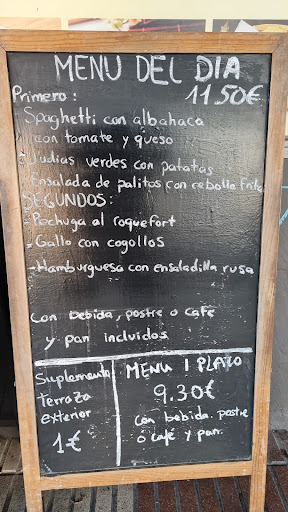 MENU DEL DIA
Primero: 11.50€
Spaghetti con albahaca
con tomate y queso
- Judias verdes con patatas
Ensalada de palitos con cebolla frita
SEGUNDOS:
- Pechuga al roquefort
- Gallo con cogollos
- Hamburguesa con ensaladilla rusa
Con bebida, postre o café
y pan incluidos
Suplemento
terraza
exterior
1€
MENU 1 PLATO
9.30€
con bebida. postre
o café y pan.